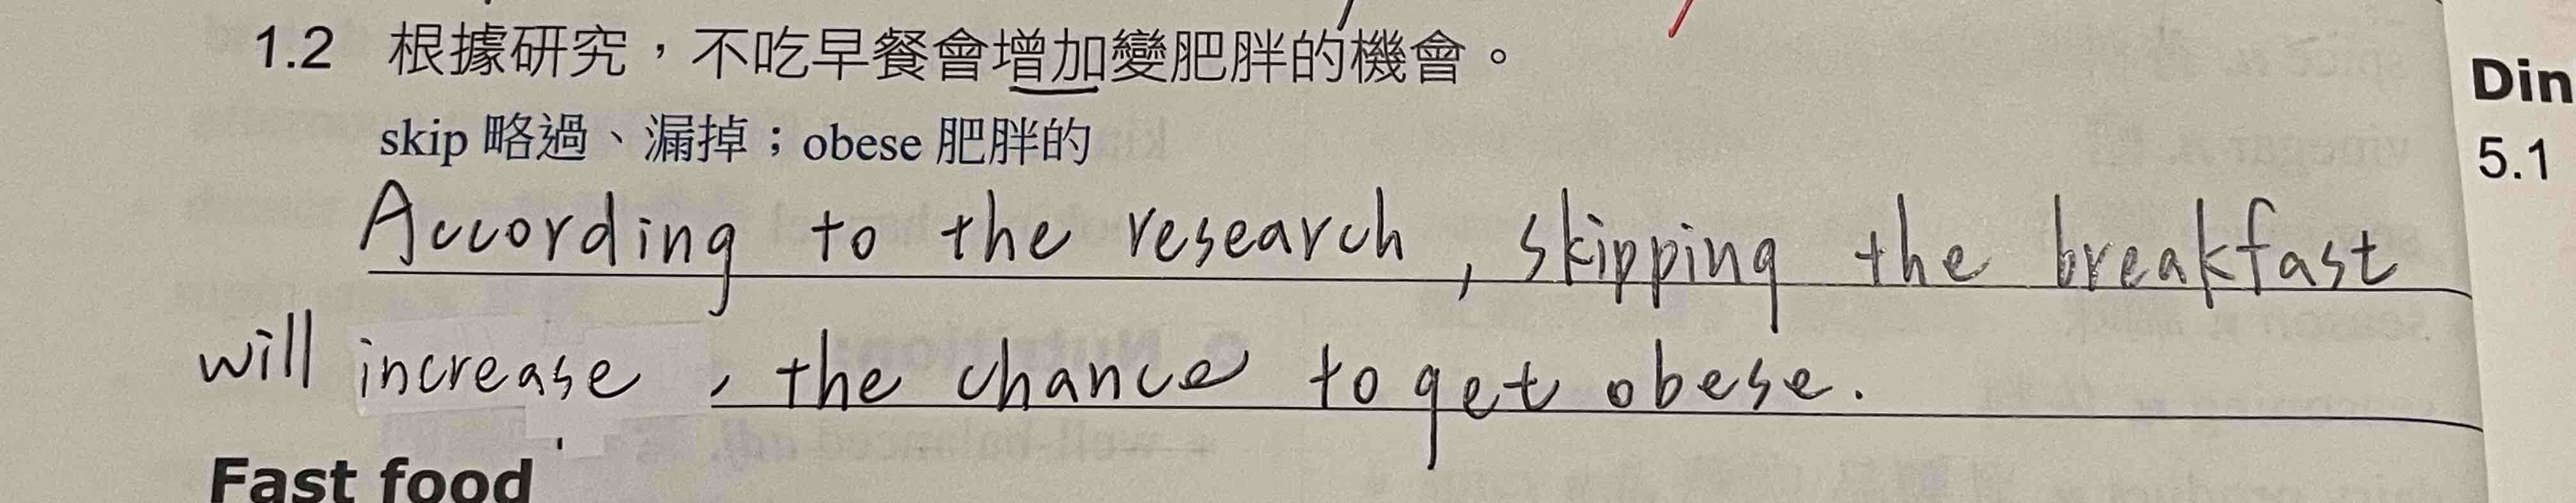 1.2 根據研究，不吃早餐會增加變肥胖的機會。
Din
skip 略過、漏掉；obese 肥胖的
5.1
According to the research, skipping the breakfast
will increase, the chance to get obese.
Fast food